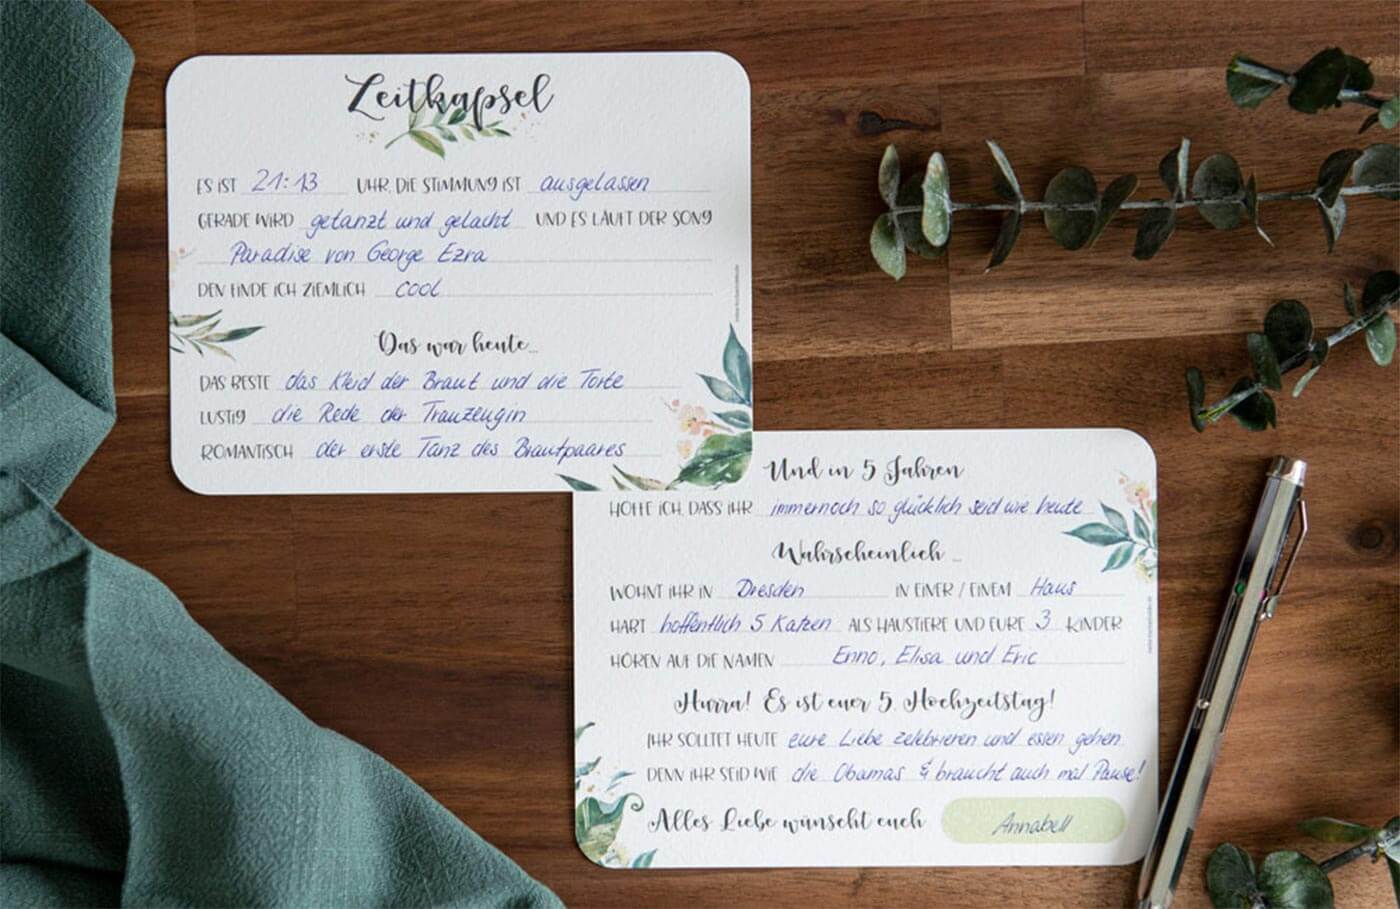 Zeitkapsel
ES IST 21:13 UHR, DIE STIMMUNG IST ausgelassen
GERADE WIRD getanzt und gelacht UND ES LÄUFT DER SONG
Paradise von George Ezra
DEN FINDE ICH ZIEMLICH cool
Das war heute...
DAS BESTE das Kleid der Braut und die Torte
LUSTIG die Rede der Trauzeugin
ROMANTISCH der erste Tanz des Brautpaares
Und in 5 Jahren
HOFFE ICH, DASS IHR immernoch so glücklich seid wie heute
Wahrscheinlich ...
WOHNT IHR IN Dresden IN EINER / EINEM Haus
HABT hoffentlich 5 Katzen ALS HAUSTIERE UND EURE 3 KINDER
HÖREN AUF DIE NAMEN Enno, Elisa und Eric
Hurra! Es ist euer 5. Hochzeitstag!
IHR SOLLTET HEUTE eure Liebe zelebrieren und essen gehen
DENN IHR SEID WIE die Obamas & braucht auch mal Pause!
Alles Liebe wünscht euch Annabell